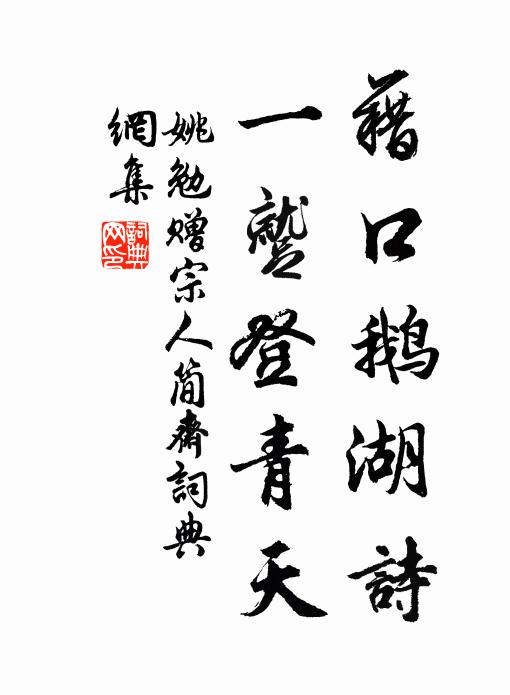 藉口鵝湖詩
一蹴登青天
姚勉赠宗人简齋詞典
網集
詞典網印